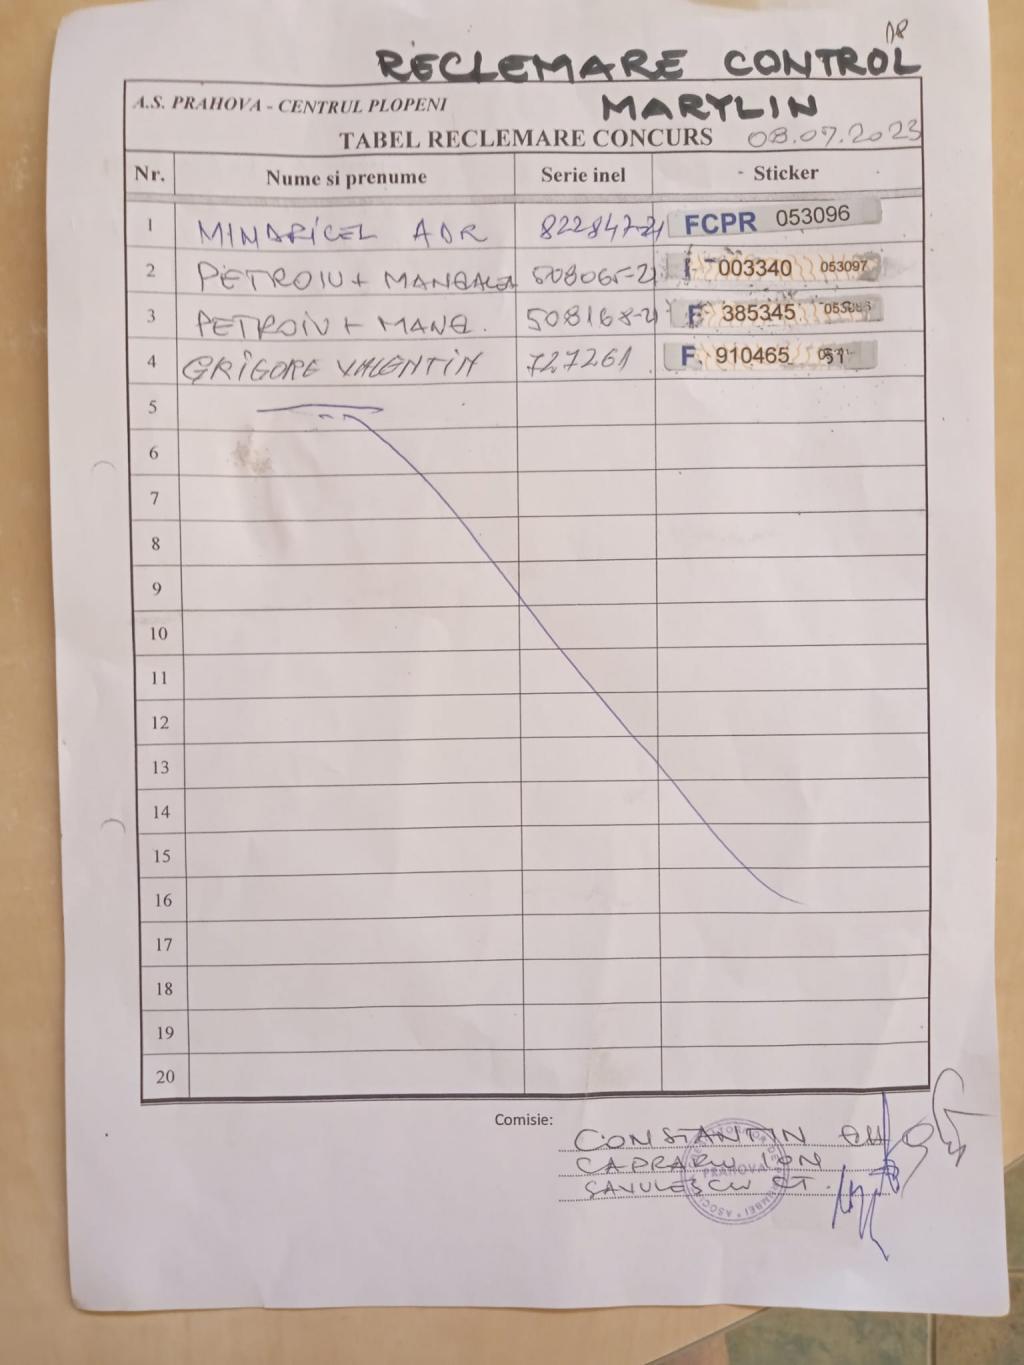 RECLEMARE CONTROL
A.S. PRAHOVA - CENTRUL PLOPENI MARYLIN
TABEL RECLEMARE CONCURS 08.07.2023
Nr. Nume si prenume Serie inel Sticker
1 MINDRICEL ADR 822847-21 FCPR 053096
2 PETROIU + 508065-21 003340 053097
3 PETROIU + MANG. 508168-21 F 385345
4 GRIGORE VALENTIN 727261 F 910465
5
6
7
8
9
10
11
12
13
14
15
16
17
18
19
20
Comisie:
CONSTANTIN
CAPRARU ION
SAVULESCU CT.
PRAHOVA